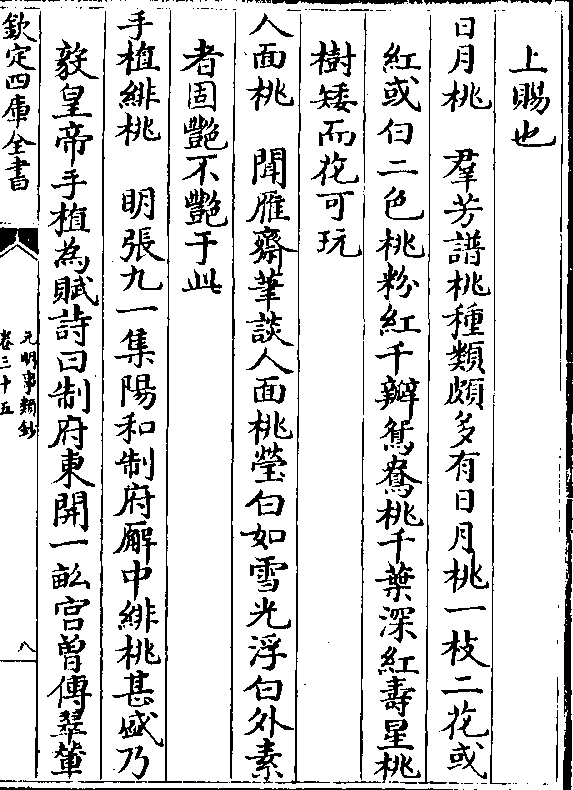 上賜也
日月桃　羣芳譜桃種類頗多有日月桃一枝二花或
紅或白二色桃粉紅千瓣鴛鴦桃千葉深紅壽星桃
樹矮而花可玩
人面桃　聞雁齋筆談人面桃瑩白如雪光浮白外素
者固艷不艷于此
手植緋桃　明張九一集陽和制府廨中緋桃甚盛乃
毅皇帝手植為賦詩曰制府東開一畝宫曽傳翠輦
欽定四庫全書
元明事類鈔
卷三十五
八